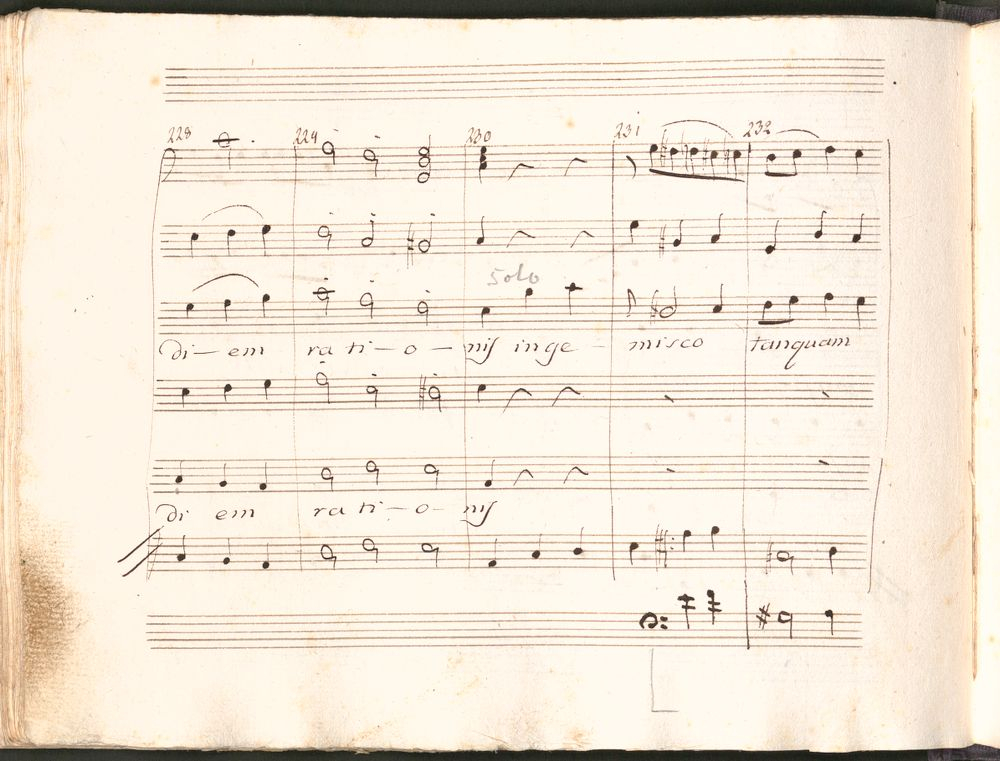 228 229 230 231 232
Solo
di - em ra ti - o - nis inge - misco tanquam
di em ra ti - o - nis